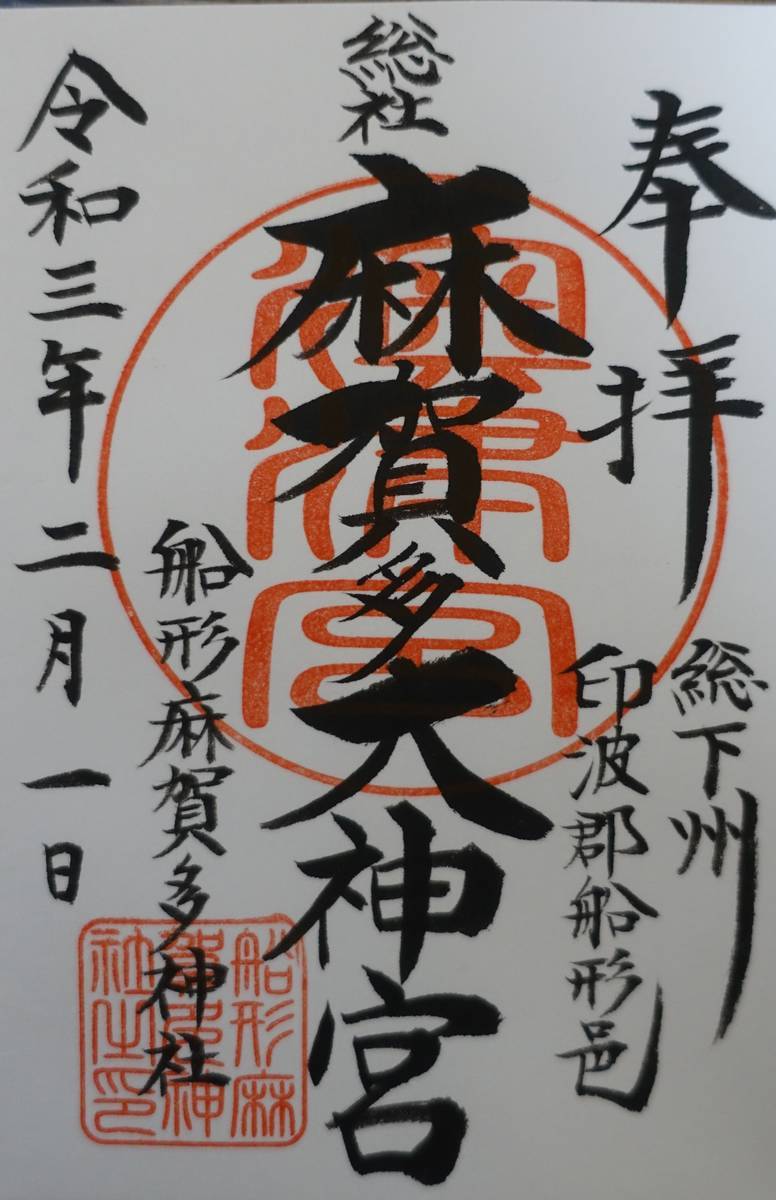 奉拝
総下州
印波郡船形邑
総社
麻賀多大神宮
船形麻賀多神社
令和三年二月一日
船形麻
賀多神
社之印